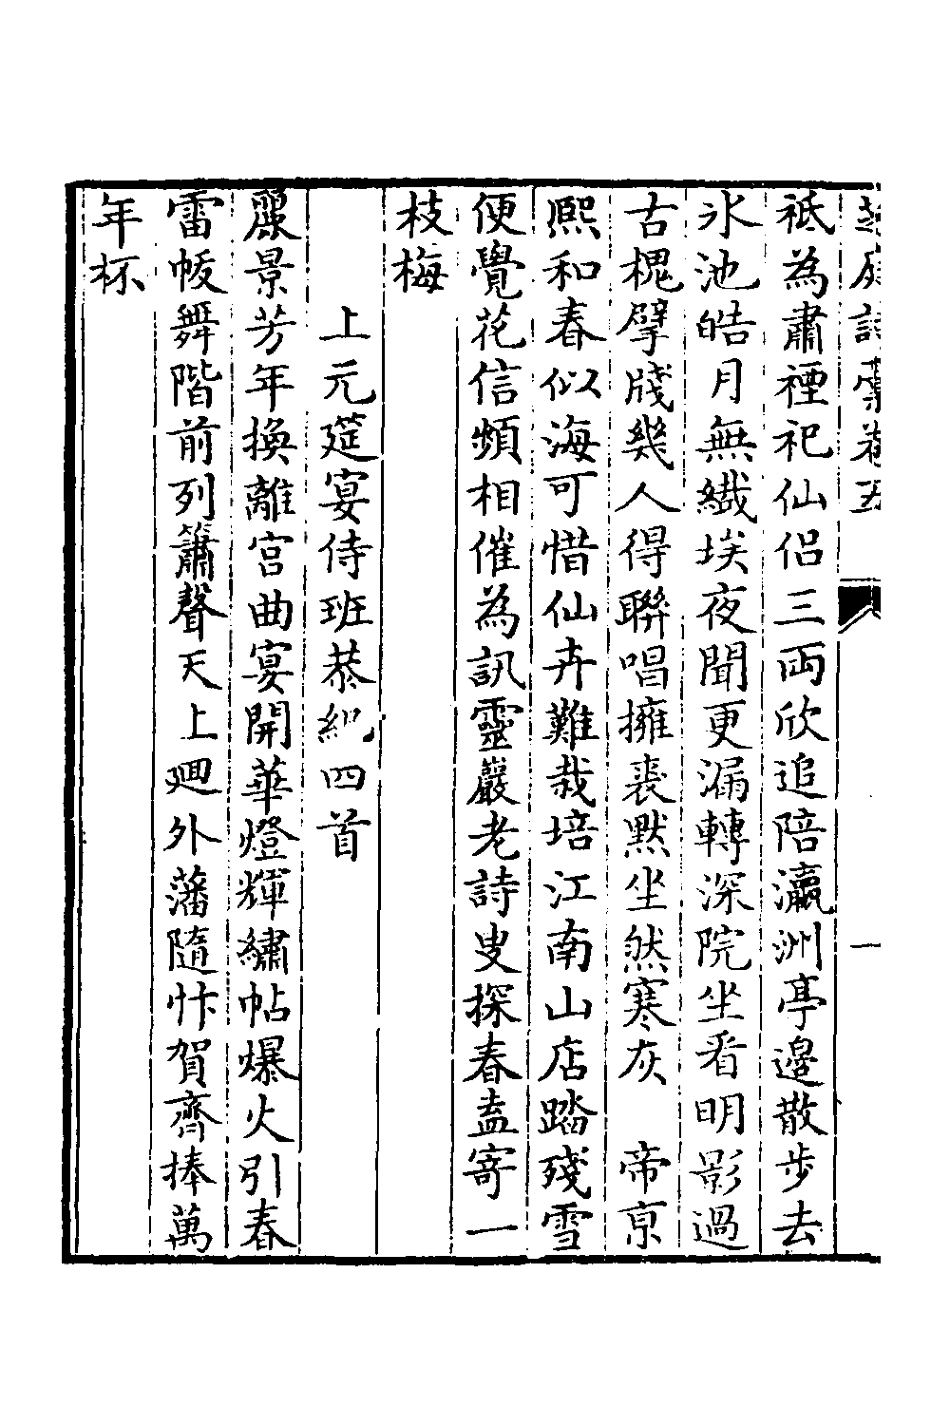 詩稾卷五
祗為肅禋祀仙侣三兩欣追陪瀛洲亭邊散步去
氷池皓月無纎埃夜聞更漏轉深院坐看明影過
古槐擘牋幾人得聯唱擁裘默坐然寒灰　帝京
熈和春似海可惜仙卉難栽培江南山店踏殘雪
便覺花信頻相催為訊靈巖老詩叟探春盍寄一
枝梅
上元筵宴侍班恭紀四首
麗景芳年換離宫曲宴開華燈輝繡帖爆火引春
雷帗舞階前列簫聲天上廻外藩隨忭賀齊捧萬
年杯
一